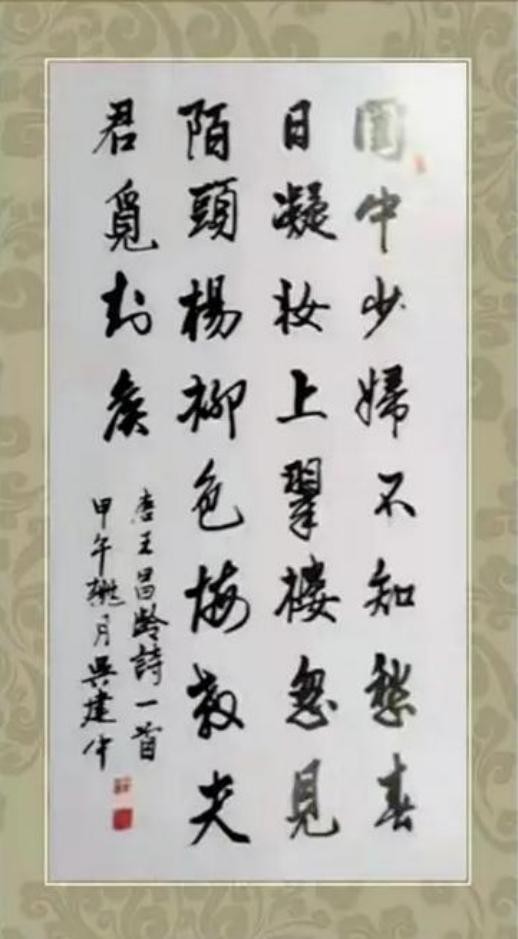 閨中少婦不知愁春
日凝妆上翠楼忽見
陌頭楊柳色悔教夫
君覓封侯
唐王昌齡詩一首
甲午桃月吳建中